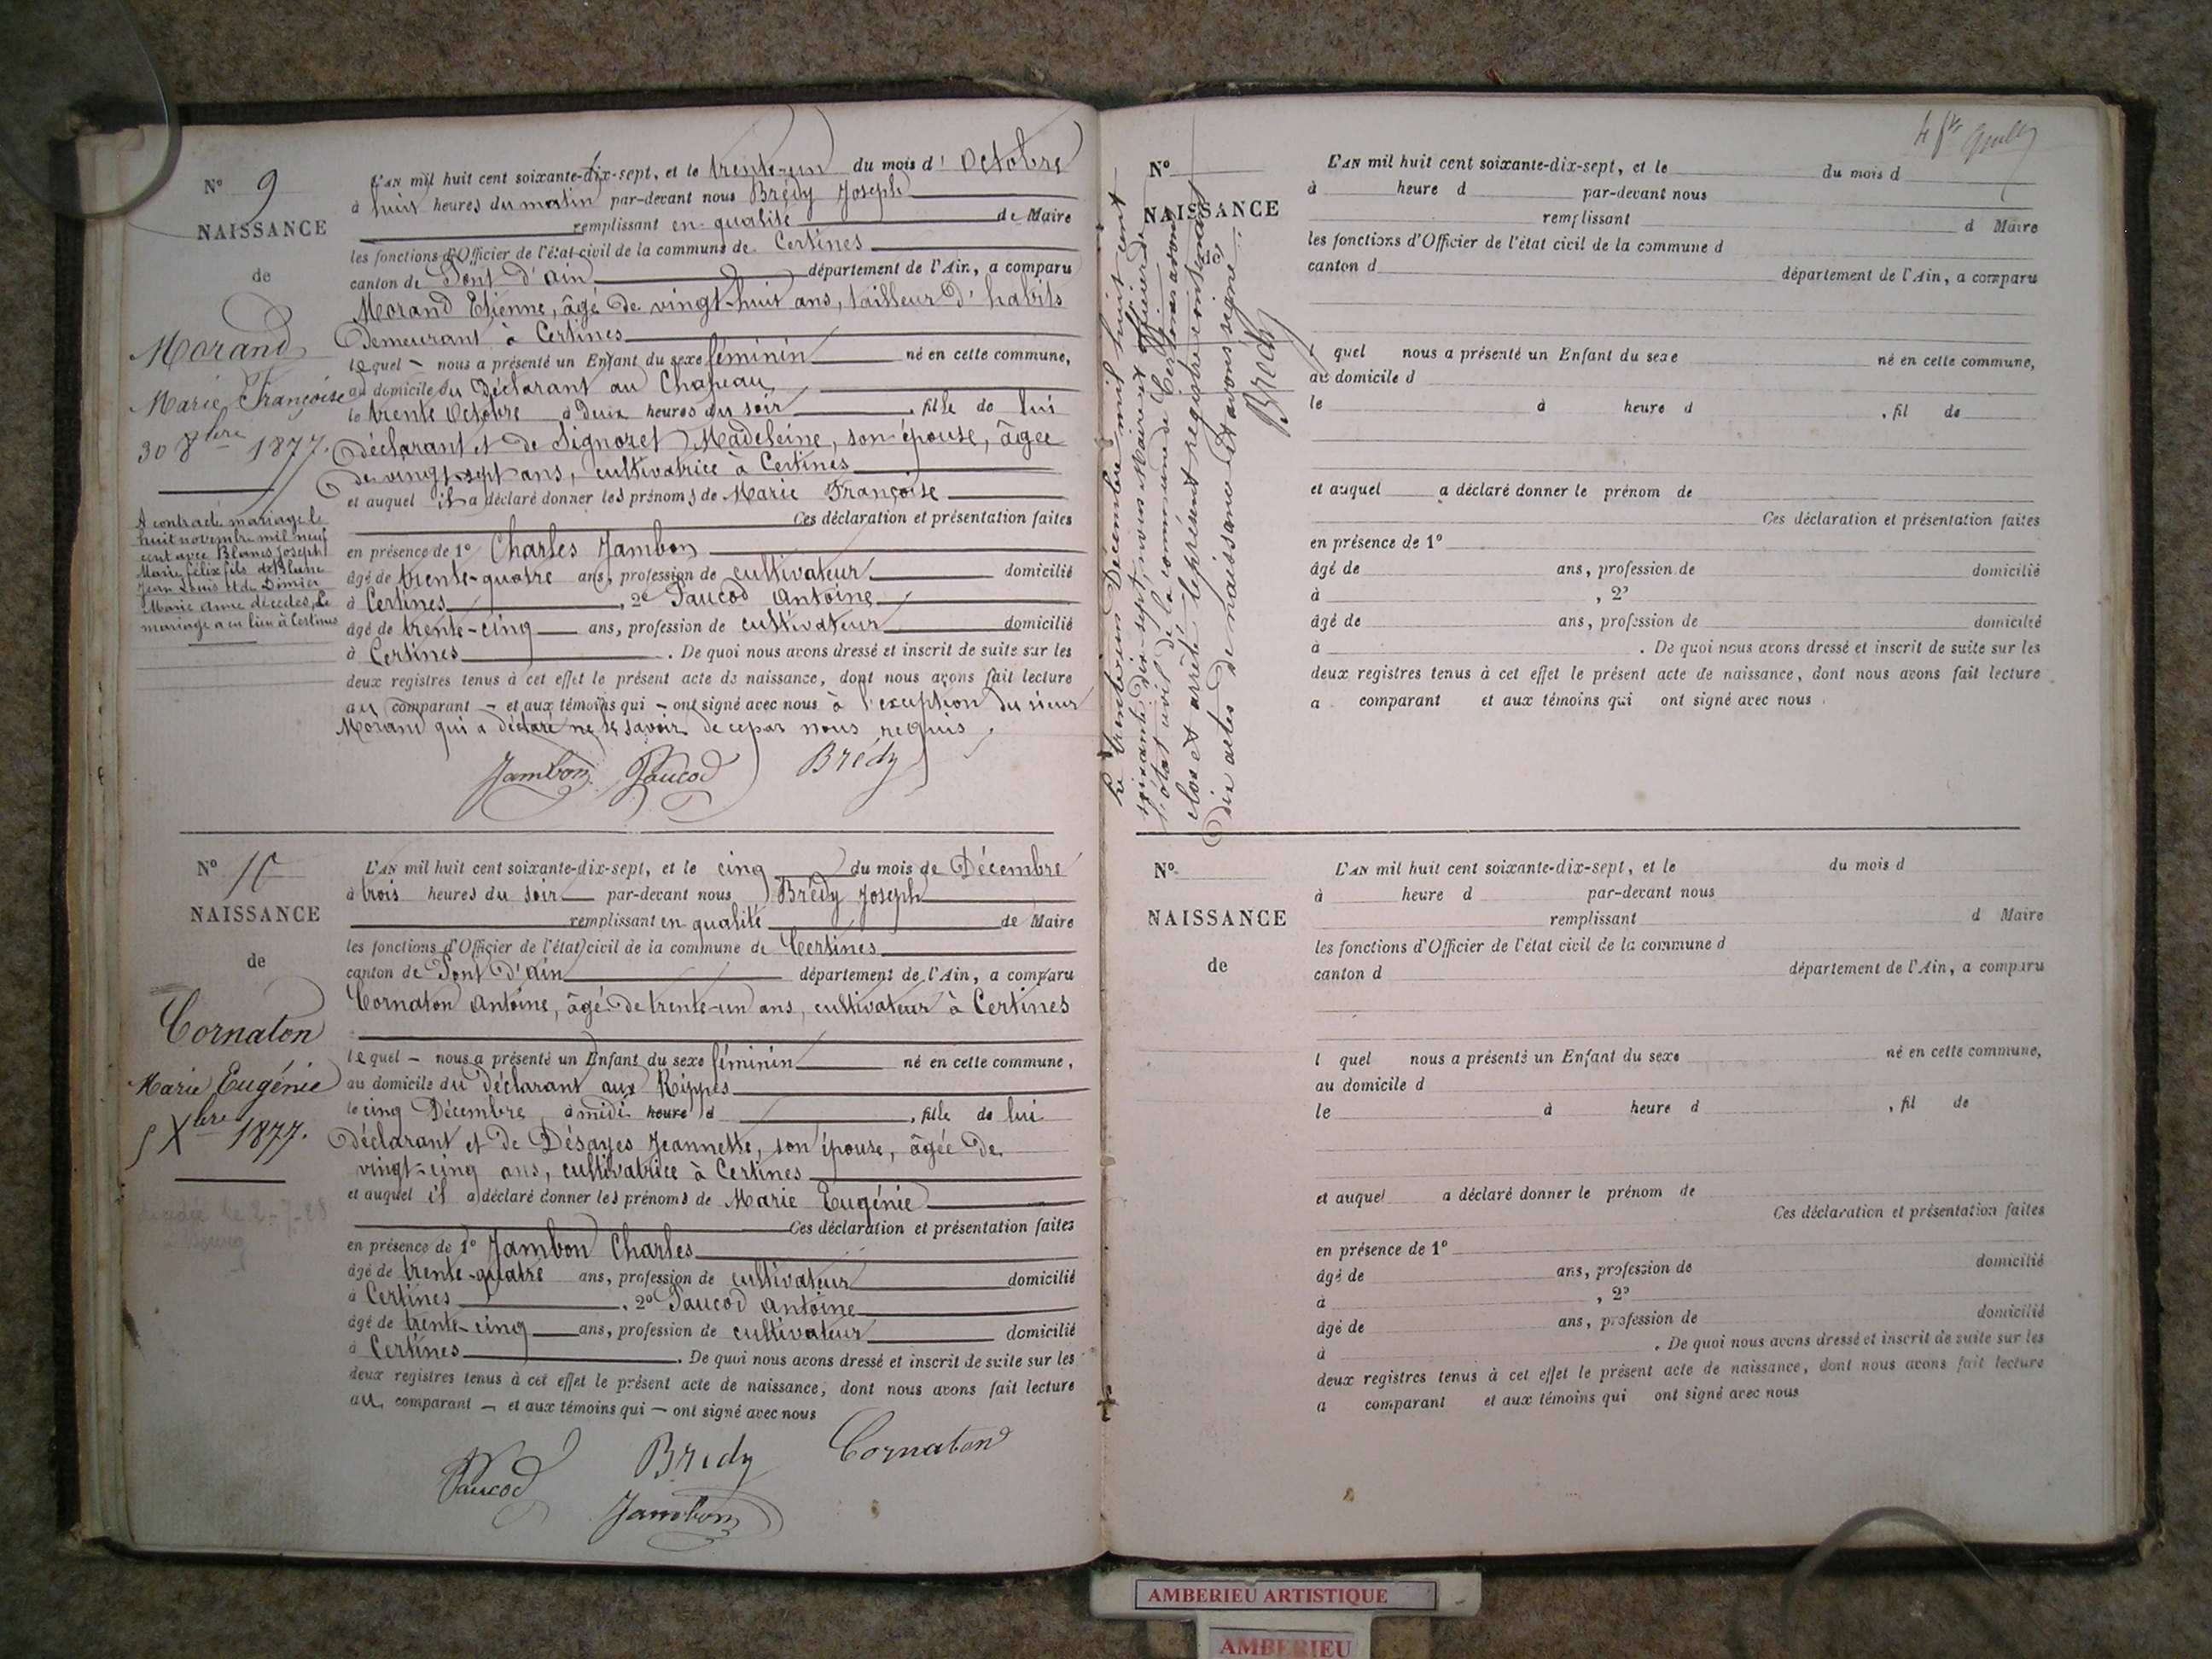 N° 9
NAISSANCE
de
Morand
Marie Françoise
30 8bre 1877.
A contracté mariage le
huit novembre mil neuf
cent avec Blanc Joseph
Marie félix fils de Blanc
Jean Louis et de Dimier
Marie Anne décédés, Le
mariage a eu lieu à Certines
L'AN mil huit cent soixante-dix-sept, et le trente-un du mois d'Octobre
à huit heures du matin par-devant nous Brédy Joseph
remplissant en qualité de Maire
les fonctions d'Officier de l'état civil de la commune de Certines
canton de Pont d'ain département de l'Ain, a comparu
Morand Etienne, âgé de vingt-huit ans, tailleur d'habits
Demeurant à Certines
lequel - nous a présenté un Enfant du sexe féminin né en cette commune,
au domicile du Déclarant au Chapeau
le trente Octobre à Deux heures du soir, fille de lui
Déclarant et de Signoret Madeleine, son épouse, âgée
de vingt-sept ans, cultivatrice à Certines
et auquel il a déclaré donner les prénoms de Marie Françoise
Ces déclaration et présentation faites
en présence de 1° Charles Jambon
âgé de trente-quatre ans, profession de cultivateur domicilié
à Certines, 2° Paucod Antoine
âgé de trente-cinq ans, profession de cultivateur domicilié
à Certines. De quoi nous avons dressé et inscrit de suite sur les
deux registres tenus à cet effet le présent acte de naissance, dont nous avons fait lecture
au comparant - et aux témoins qui - ont signé avec nous à l'exception du sieur
Morand qui a déclaré ne le savoir de ce par nous requis.
Jambon Paucod Brédy
N° 10
NAISSANCE
de
Cornaton
Marie Eugénie
5 Xbre 1877.
décédée le 2-7-
L'AN mil huit cent soixante-dix-sept, et le cinq du mois de Décembre
à trois heures du soir par-devant nous Brédy Joseph
remplissant en qualité de Maire
les fonctions d'Officier de l'état civil de la commune de Certines
canton de Pont d'ain département de l'Ain, a comparu
Cornaton Antoine, âgé de trente-un ans, cultivateur à Certines
lequel - nous a présenté un Enfant du sexe féminin né en cette commune,
au domicile du Déclarant aux Rippes
le cinq Décembre, à midi heure d, fille de lui
Déclarant et de Désayes Jeannette, son épouse, âgée de
vingt-cinq ans, cultivatrice à Certines
et auquel il a déclaré donner les prénoms de Marie Eugénie
Ces déclaration et présentation faites
en présence de 1° Jambon Charles
âgé de trente-quatre ans, profession de cultivateur domicilié
à Certines, 2° Paucod Antoine
âgé de trente-cinq ans, profession de cultivateur domicilié
à Certines. De quoi nous avons dressé et inscrit de suite sur les
deux registres tenus à cet effet le présent acte de naissance, dont nous avons fait lecture
au comparant - et aux témoins qui - ont signé avec nous
Paucod Bredy Cornaton
Jambon
Le trente-un Décembre mil huit cent
soixante-dix-sept, nous Maire et officier de
l'état civil de la commune de Certines avons
clos et arrêté le présent registre contenant
Dix actes de naissance et avons signé.
Bredy
N°
NAISSANCE
L'AN mil huit cent soixante-dix-sept, et le du mois d
à heure d par-devant nous
remplissant d Maire
les fonctions d'Officier de l'état civil de la commune d
canton d département de l'Ain, a comparu
l quel nous a présenté un Enfant du sexe né en cette commune,
au domicile d
le à heure d, fil de
et auquel a déclaré donner le prénom de
Ces déclaration et présentation faites
en présence de 1°
âgé de ans, profession de domicilié
à , 2°
âgé de ans, profession de domicilié
à . De quoi nous avons dressé et inscrit de suite sur les
deux registres tenus à cet effet le présent acte de naissance, dont nous avons fait lecture
a comparant et aux témoins qui ont signé avec nous
N°
NAISSANCE
de
L'AN mil huit cent soixante-dix-sept, et le du mois d
à heure d par-devant nous
remplissant d Maire
les fonctions d'Officier de l'état civil de la commune d
canton d département de l'Ain, a comparu
l quel nous a présenté un Enfant du sexe né en cette commune,
au domicile d
le à heure d , fil de
et auquel a déclaré donner le prénom de
Ces déclaration et présentation faites
en présence de 1°
âgé de ans, profession de domicilié
à , 2°
âgé de ans, profession de domicilié
à . De quoi nous avons dressé et inscrit de suite sur les
deux registres tenus à cet effet le présent acte de naissance, dont nous avons fait lecture
a comparant et aux témoins qui ont signé avec nous
AMBERIEU ARTISTIQUE
AMBERIEU